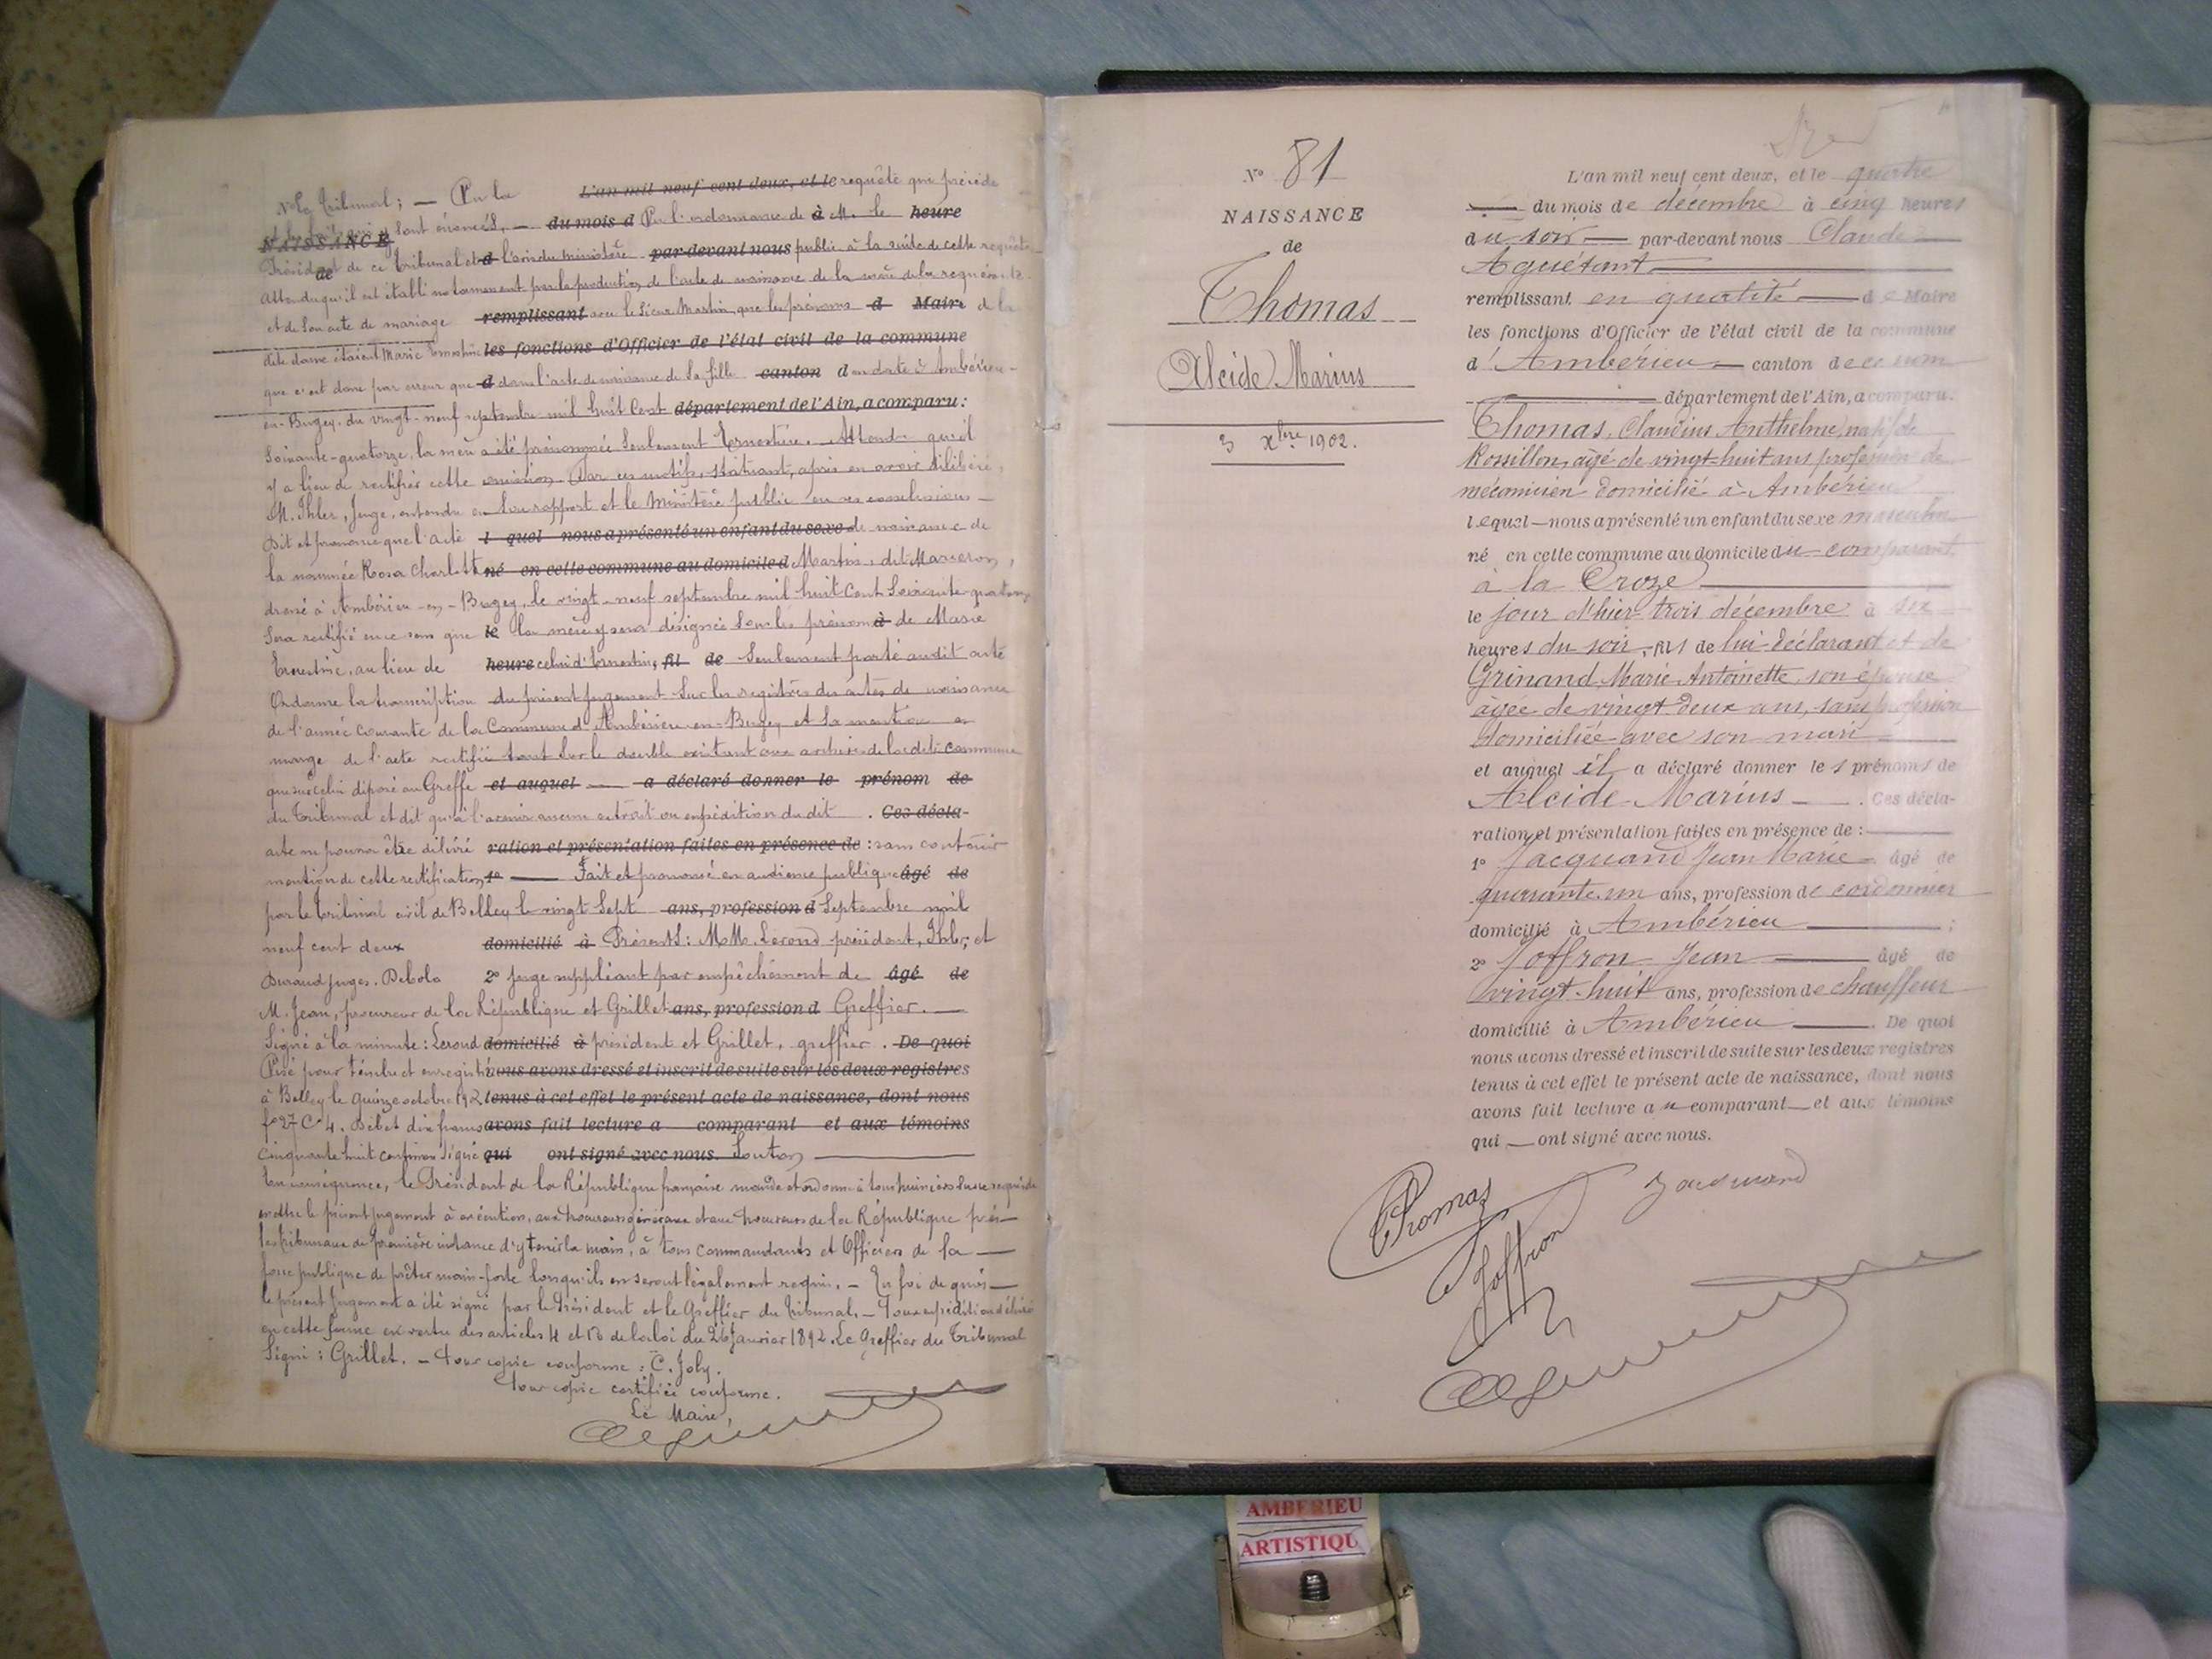 Le Tribunal ; — Vu la L'an mil neuf cent deux, et le requête qui précède
sont énoncés, — du mois d Vu l'ordonnance de à M. le heure
NAISSANCE
Président de ce Tribunal et d l'avis du ministère par-devant nous public à la suite de cette requête
de
Attendu qu'il est établi notamment par la production de l'acte de naissance de la mère de la requérante
et de son acte de mariage remplissant avec le sieur Martin, que les prénoms d Maire de la
dite dame étaient Marie Ernestine les fonctions d'Officier de l'état civil de la commune
que c'est donc par erreur que d dans l'acte de naissance de sa fille canton d en date à Ambérieu-
en-Bugey du vingt-neuf septembre mil huit cent département de l'Ain, a comparu :
soixante-quatorze, la mère a été prénommée seulement Ernestine. — Attendu qu'il
y a lieu de rectifier cette omission. Par ces motifs, statuant, après en avoir délibéré,
M. Ihler, Juge, entendu en son rapport et le Ministère public en ses conclusions —
Dit et prononce que l'acte l quel nous a présenté un enfant du sexe de naissance de
la nommée Rosa Charlotte né en cette commune au domicile d Martin, dit Marieron,
dressé à Ambérieu-en-Bugey, le vingt-neuf septembre mil huit cent soixante-quatorze
sera rectifié en ce sens que le la mère y sera désignée sous les prénoms à de Marie
Ernestine, au lieu de heure celui d'Ernestine, fil de seulement porté audit acte
Ordonne la transcription du présent jugement sur les registres des actes de naissance
de l'année courante de la Commune d'Ambérieu-en-Bugey et sa mention en
marge de l'acte rectifié tant sur le double existant aux archives de la dite commune
que sur celui déposé au Greffe et auquel — a déclaré donner le prénom de
du Tribunal et dit qu'à l'avenir aucun extrait ou expédition du dit . Ces décla-
acte ne pourra être délivré ration et présentation faites en présence de : sans contenir
mention de cette rectification, 1° — Fait et prononcé en audience publique âgé de
par le Tribunal civil de Belley le vingt sept ans, profession d Septembre mil
neuf cent deux domicilié à Présents : M.M. Lerond président, Ihler, et
Durand juges. Debola 2° juge suppléant par empêchement de âgé de
M. Jean, procureur de la République et Grillet ans, profession d Greffier. —
Signé à la minute : Lerond domicilié à président et Grillet, greffier . De quoi
Visé pour timbre et enregistré nous avons dressé et inscrit de suite sur les deux registres
à Belley le quinze octobre 1902 tenus à cet effet le présent acte de naissance, dont nous
f° 27 C 4. Débet dix francs avons fait lecture a comparant et aux témoins
cinquante huit centimes Signé qui ont signé avec nous. Louton
En conséquence, le Président de la République française mande et ordonne à tous huissiers sur ce requis de
mettre le présent jugement à exécution, aux procureurs généraux et aux Procureurs de la République près —
les tribunaux de première instance d'y tenir la main, à tous commandants et Officiers de la —
force publique de prêter main-forte lorsqu'ils en seront légalement requis. — En foi de quoi —
le présent jugement a été signé par le Président et le Greffier du Tribunal. — Pour expédition délivrée
en cette forme en vertu des articles 4 et 13 de la loi du 26 Janvier 1892. Le Greffier du Tribunal
Signé : Grillet. — Pour copie conforme : C. Joly.
Pour copie certifiée conforme.
Le Maire,
N° 81
NAISSANCE
de
Thomas
Alcide Marius
3 Xbre 1902.
L'an mil neuf cent deux, et le quatre
— du mois de décembre à cinq heures
du soir — par-devant nous Claude
Aguétant
remplissant en qualité — de Maire
les fonctions d'Officier de l'état civil de la commune
d'Ambérieu — canton de ce nom
— département de l'Ain, a comparu.
Thomas, Claudius Anthelme, natif de
Rossillon, âgé de vingt-huit ans profession de
mécanicien domicilié à Ambérieu
lequel — nous a présenté un enfant du sexe masculin
né en cette commune au domicile du comparant
à la Croze
le jour d'hier trois décembre à six
heures du soir, fils de lui déclarant et de
Grinand, Marie Antoinette, son épouse
âgée de vingt deux ans, sans profession
domiciliée avec son mari
et auquel il a déclaré donner les prénoms de
Alcide Marius — . Ces décla-
ration et présentation faites en présence de :
1° Jacquand Jean Marie âgé de
quarante un ans, profession de cordonnier
domicilié à Ambérieu — ;
2° Joffron Jean — âgé de
vingt-huit ans, profession de chauffeur
domicilié à Ambérieu — . De quoi
nous avons dressé et inscrit de suite sur les deux registres
tenus à cet effet le présent acte de naissance, dont nous
avons fait lecture au comparant — et aux témoins
qui — ont signé avec nous.
Thomas
Jacquand
Joffron
AMBERIEU
ARTISTIQU